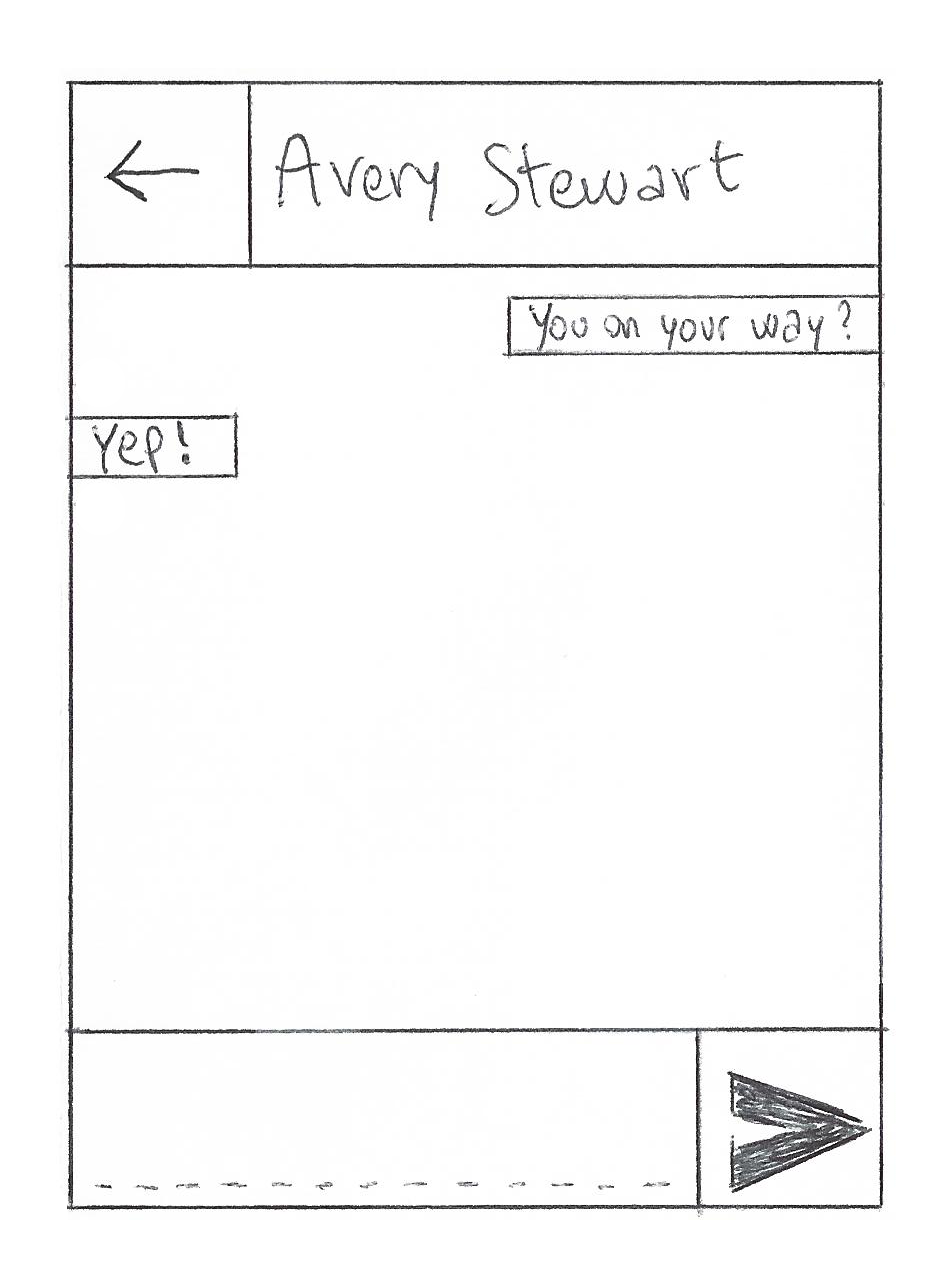 Avery Stewart
You on your way?
Yep!